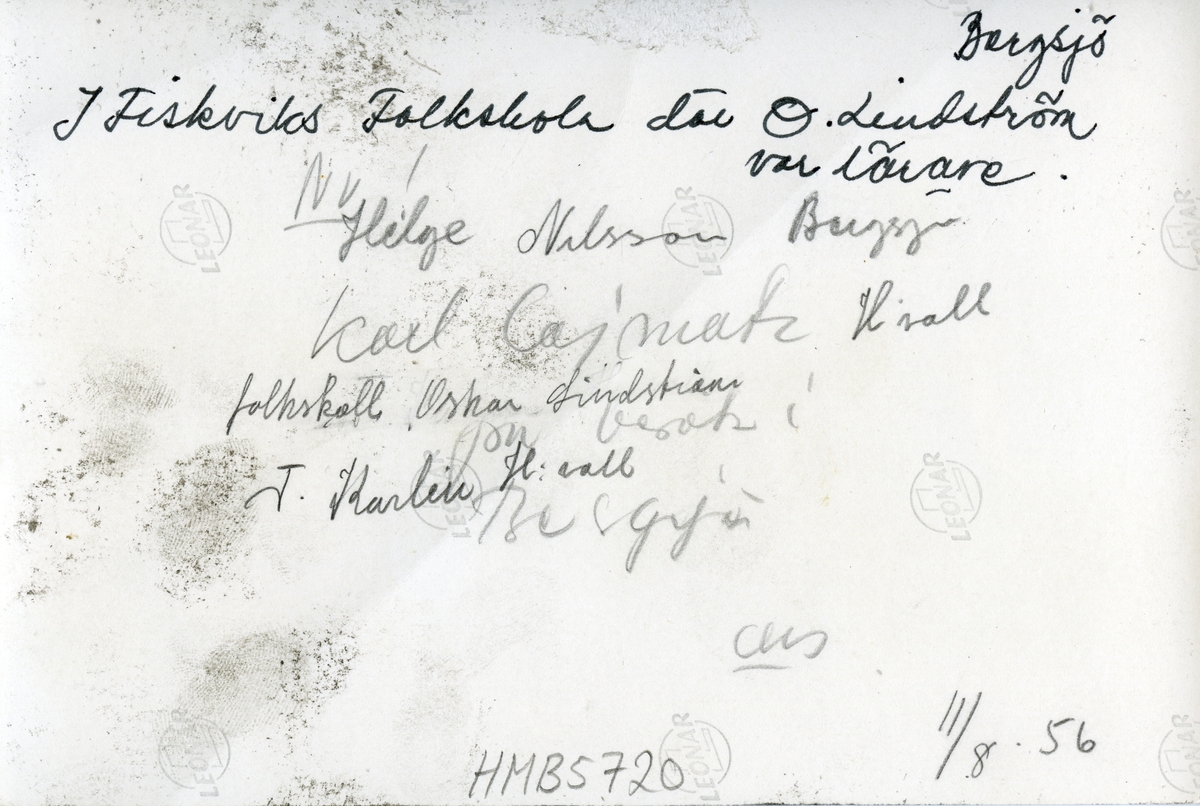 Bergsjö
I Fiskviks Folkskola där O. Lindström
var lärare.
NV
Helge Nilsson Bergsjö
Karl Cajmatz H vall
folkskoll. Oskar Lindström
på besök i
T. Karlin H:vall
Bergsjö
11/8. 56
HMB5720
LEONAR
LEONAR
LEONAR
LEONAR
LEONAR
LEONAR
LEONAR
LEONAR